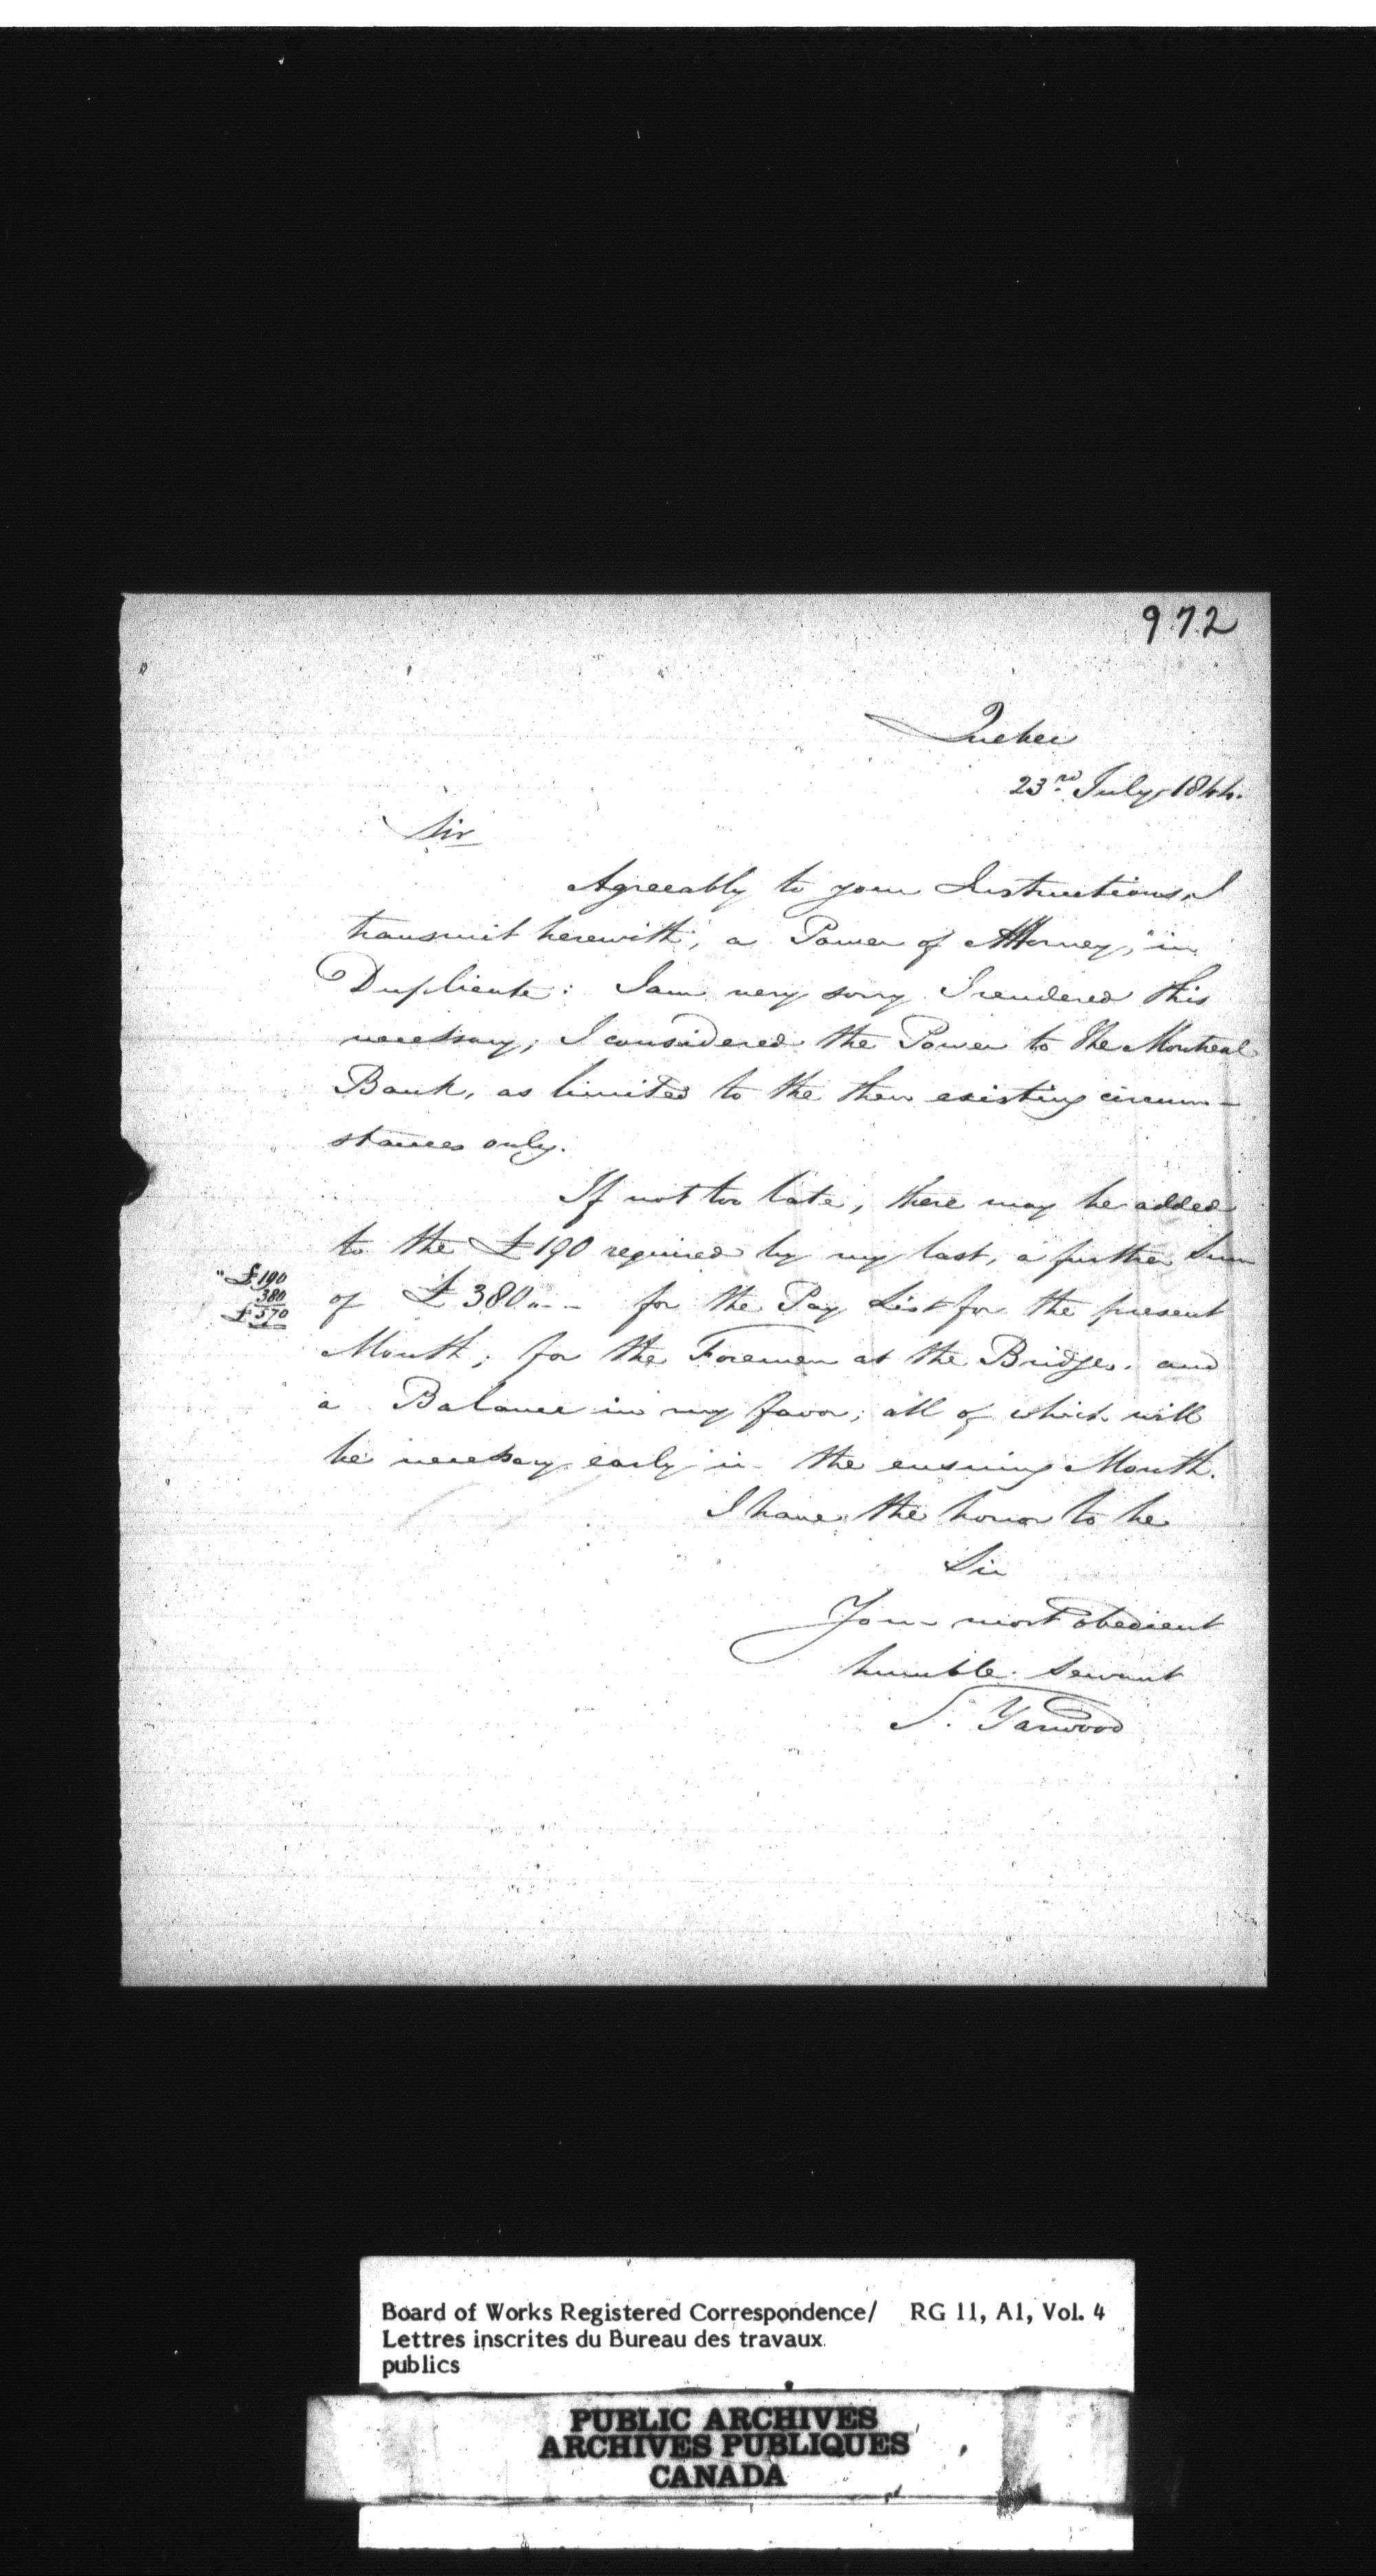 972
Quebec
23rd July, 1844.
Sir
Agreeably to your Instructions, I
transmit herewith, a Power of Attorney, in
Duplicate: I am very sorry I rendered this
necessary; I considered the Power to the Montreal
Bank, as limited to the then existing circum-
stances only.
If not too late, there may be added
to the £190 required by my last, a further Sum
of £380"-- for the Pay List for the present
Month; for the Foremen at the Bridges. and
a Balance in my favor; all of which will
be necessary early in the ensuing Month.
"£190
380
£570
I have the honor to be
Sir
Your most obedient
humble Servant
S. Yarwood
Board of Works Registered Correspondence/ RG 11, A1, Vol. 4
Lettres inscrites du Bureau des travaux
publics
PUBLIC ARCHIVES
ARCHIVES PUBLIQUES
CANADA